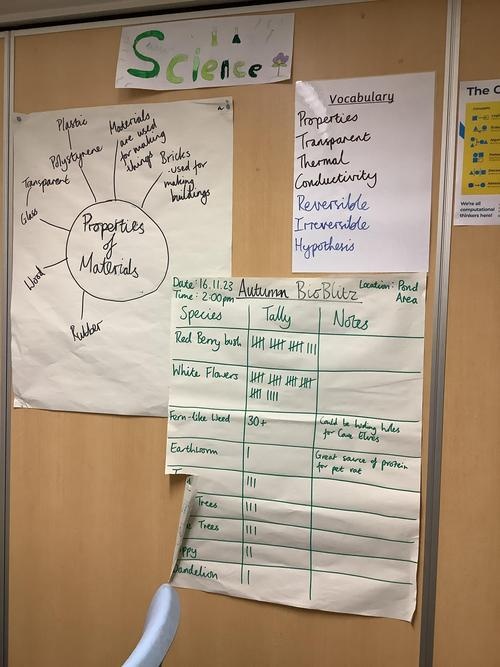 Science
Plastic
Polystyrene
Materials
are used
for making
things
Bricks
-used for
making
buildings
Transparent
Glass
Wood
Rubber
Properties
of
Materials
Vocabulary
Properties
Transparent
Thermal
Conductivity
Reversible
Irreversible
Hypothesis
The C
We're all
computational
thinkers here!
Date: 16.11.23 Autumn BioBlitz Location: Pond
Time: 2:00pm Area
Species Tally Notes
Red Berry bush
White Flowers
Fern-like Weed 30+ Could be hiding holes
for Cave Elves
Earthworm Great source of protein
for pet rat
Trees
Trees
ppy
Dandelion